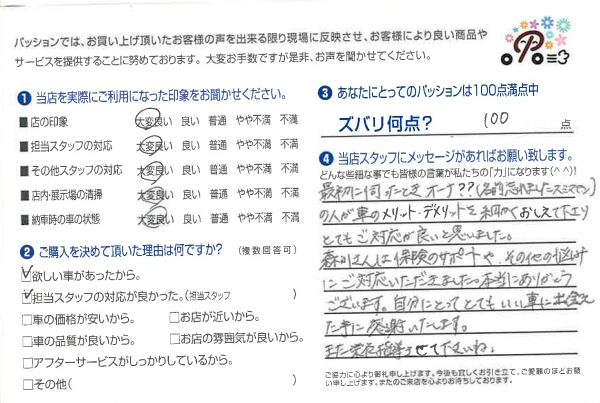 パッションでは、お買い上げ頂いたお客様の声を出来る限り現場に反映させ、お客様により良い商品や
サービスを提供することに努めております。 大変お手数ですが是非、お声を聞かせてください。
❶ 当店を実際にご利用になった印象をお聞かせください。
■ 店の印象 大変良い 良い 普通 やや不満 不満
■ 担当スタッフの対応 大変良い 良い 普通 やや不満 不満
■ その他スタッフの対応 大変良い 良い 普通 やや不満 不満
■ 店内・展示場の清掃 大変良い 良い 普通 やや不満 不満
■ 納車時の車の状態 大変良い 良い 普通 やや不満 不満
❷ ご購入を決めて頂いた理由は何ですか? (複数回答可)
☑欲しい車があったから。
☑担当スタッフの対応が良かった。(担当スタッフ )
□車の価格が安いから。 □お店が近いから。
□車の品質が良いから。 □お店の雰囲気が良いから。
□アフターサービスがしっかりしているから。
□その他( )
❸ あなたにとってのパッションは100点満点中
ズバリ何点? 100 点
❹ 当店スタッフにメッセージがあればお願い致します。
どんな些細な事でも皆様の言葉が私たちの「力」になります(^ ^)!
最初に伺ったとき オーナ??(名前忘れましたスミマセン)
の人が車のメリット・デメリットを細かくおしえて下さり
とてもご対応が良いと思いました。
森川さんは保険のサポートや、その他の悩み
にご対応いただきました。本当にありがとう
ございます。自分にとってとてもいい車に出会え
た事に感謝いたします。
また させて下さいね。
ご協力に心より御礼申し上げます。今後も宜しくお引き立て、ご愛顧のほどお願
い申し上げます。またのご来店を心よりお待ちしております。